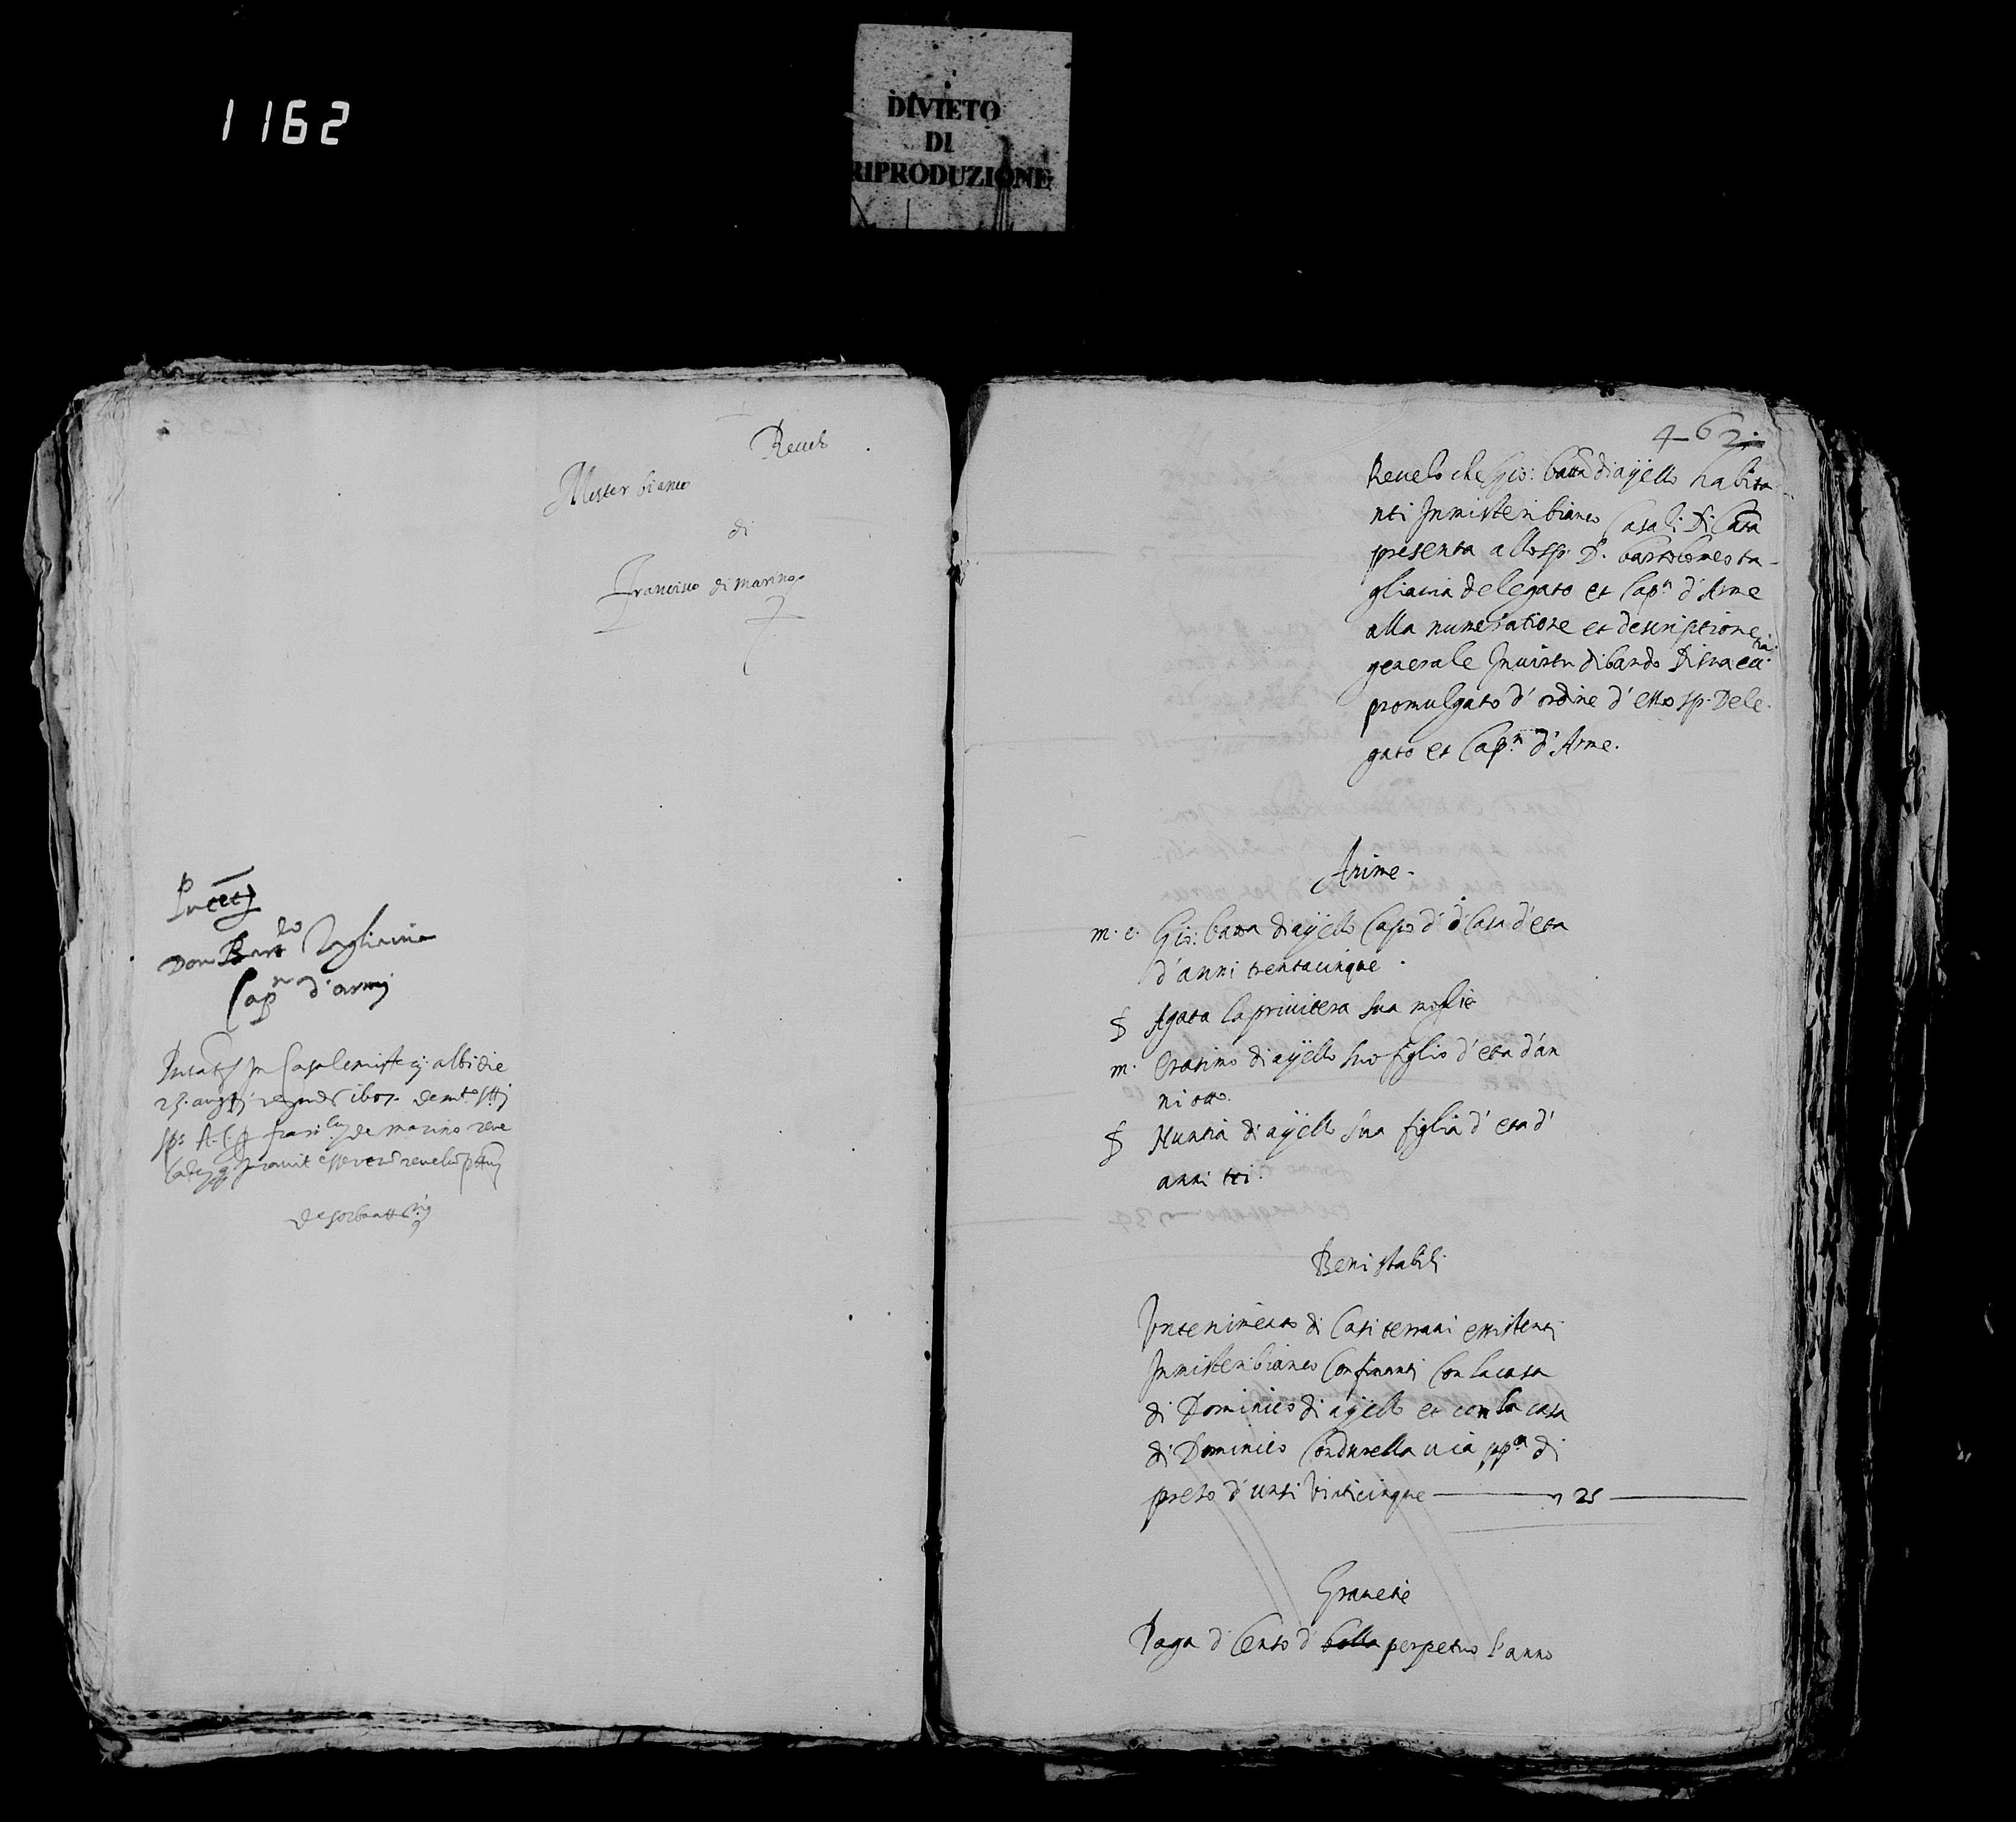 1162
DIVIETO
DI
RIPRODUZIONE
Revelo
Mister bianco
di
Francisco di marino
Don Bart.lo Tagliavia
Cap.n d'armi
de marino reve
462
Revelo che Gio: batta di ajello habita
nti In misteri bianco Casali di Cata
presenta allo sp. D. bartolomeo ta-
gliavia delegato et Cap.n d'Arme
alla numeratione et descriptione
generale In virtu di bando di sua ecc.tia
promulgato d'ordine d'esso sp. Dele-
gato et Cap.n d'Arme.
Anime.
m. c. Gio: batta di ajello Capo d'di Casa d'eta
d'anni trentacinque.
f Agata la privitera sua moglie
m. Erasimo di ajello suo figlio d'eta d'an
ni otto.
f Nuntia di ajello sua figlia d'eta d'
anni tri.
Beni stabili
Un tenimento di Casi terrani existenti
In misteri bianco Confinanti Con la casa
di Dominico di ajello et con la casa
di Dominico Condurella via pp.a di
prezo d'unzi vinticinque 25
Gravezie
Paga di Censo d' bolla perpetuo l'anno